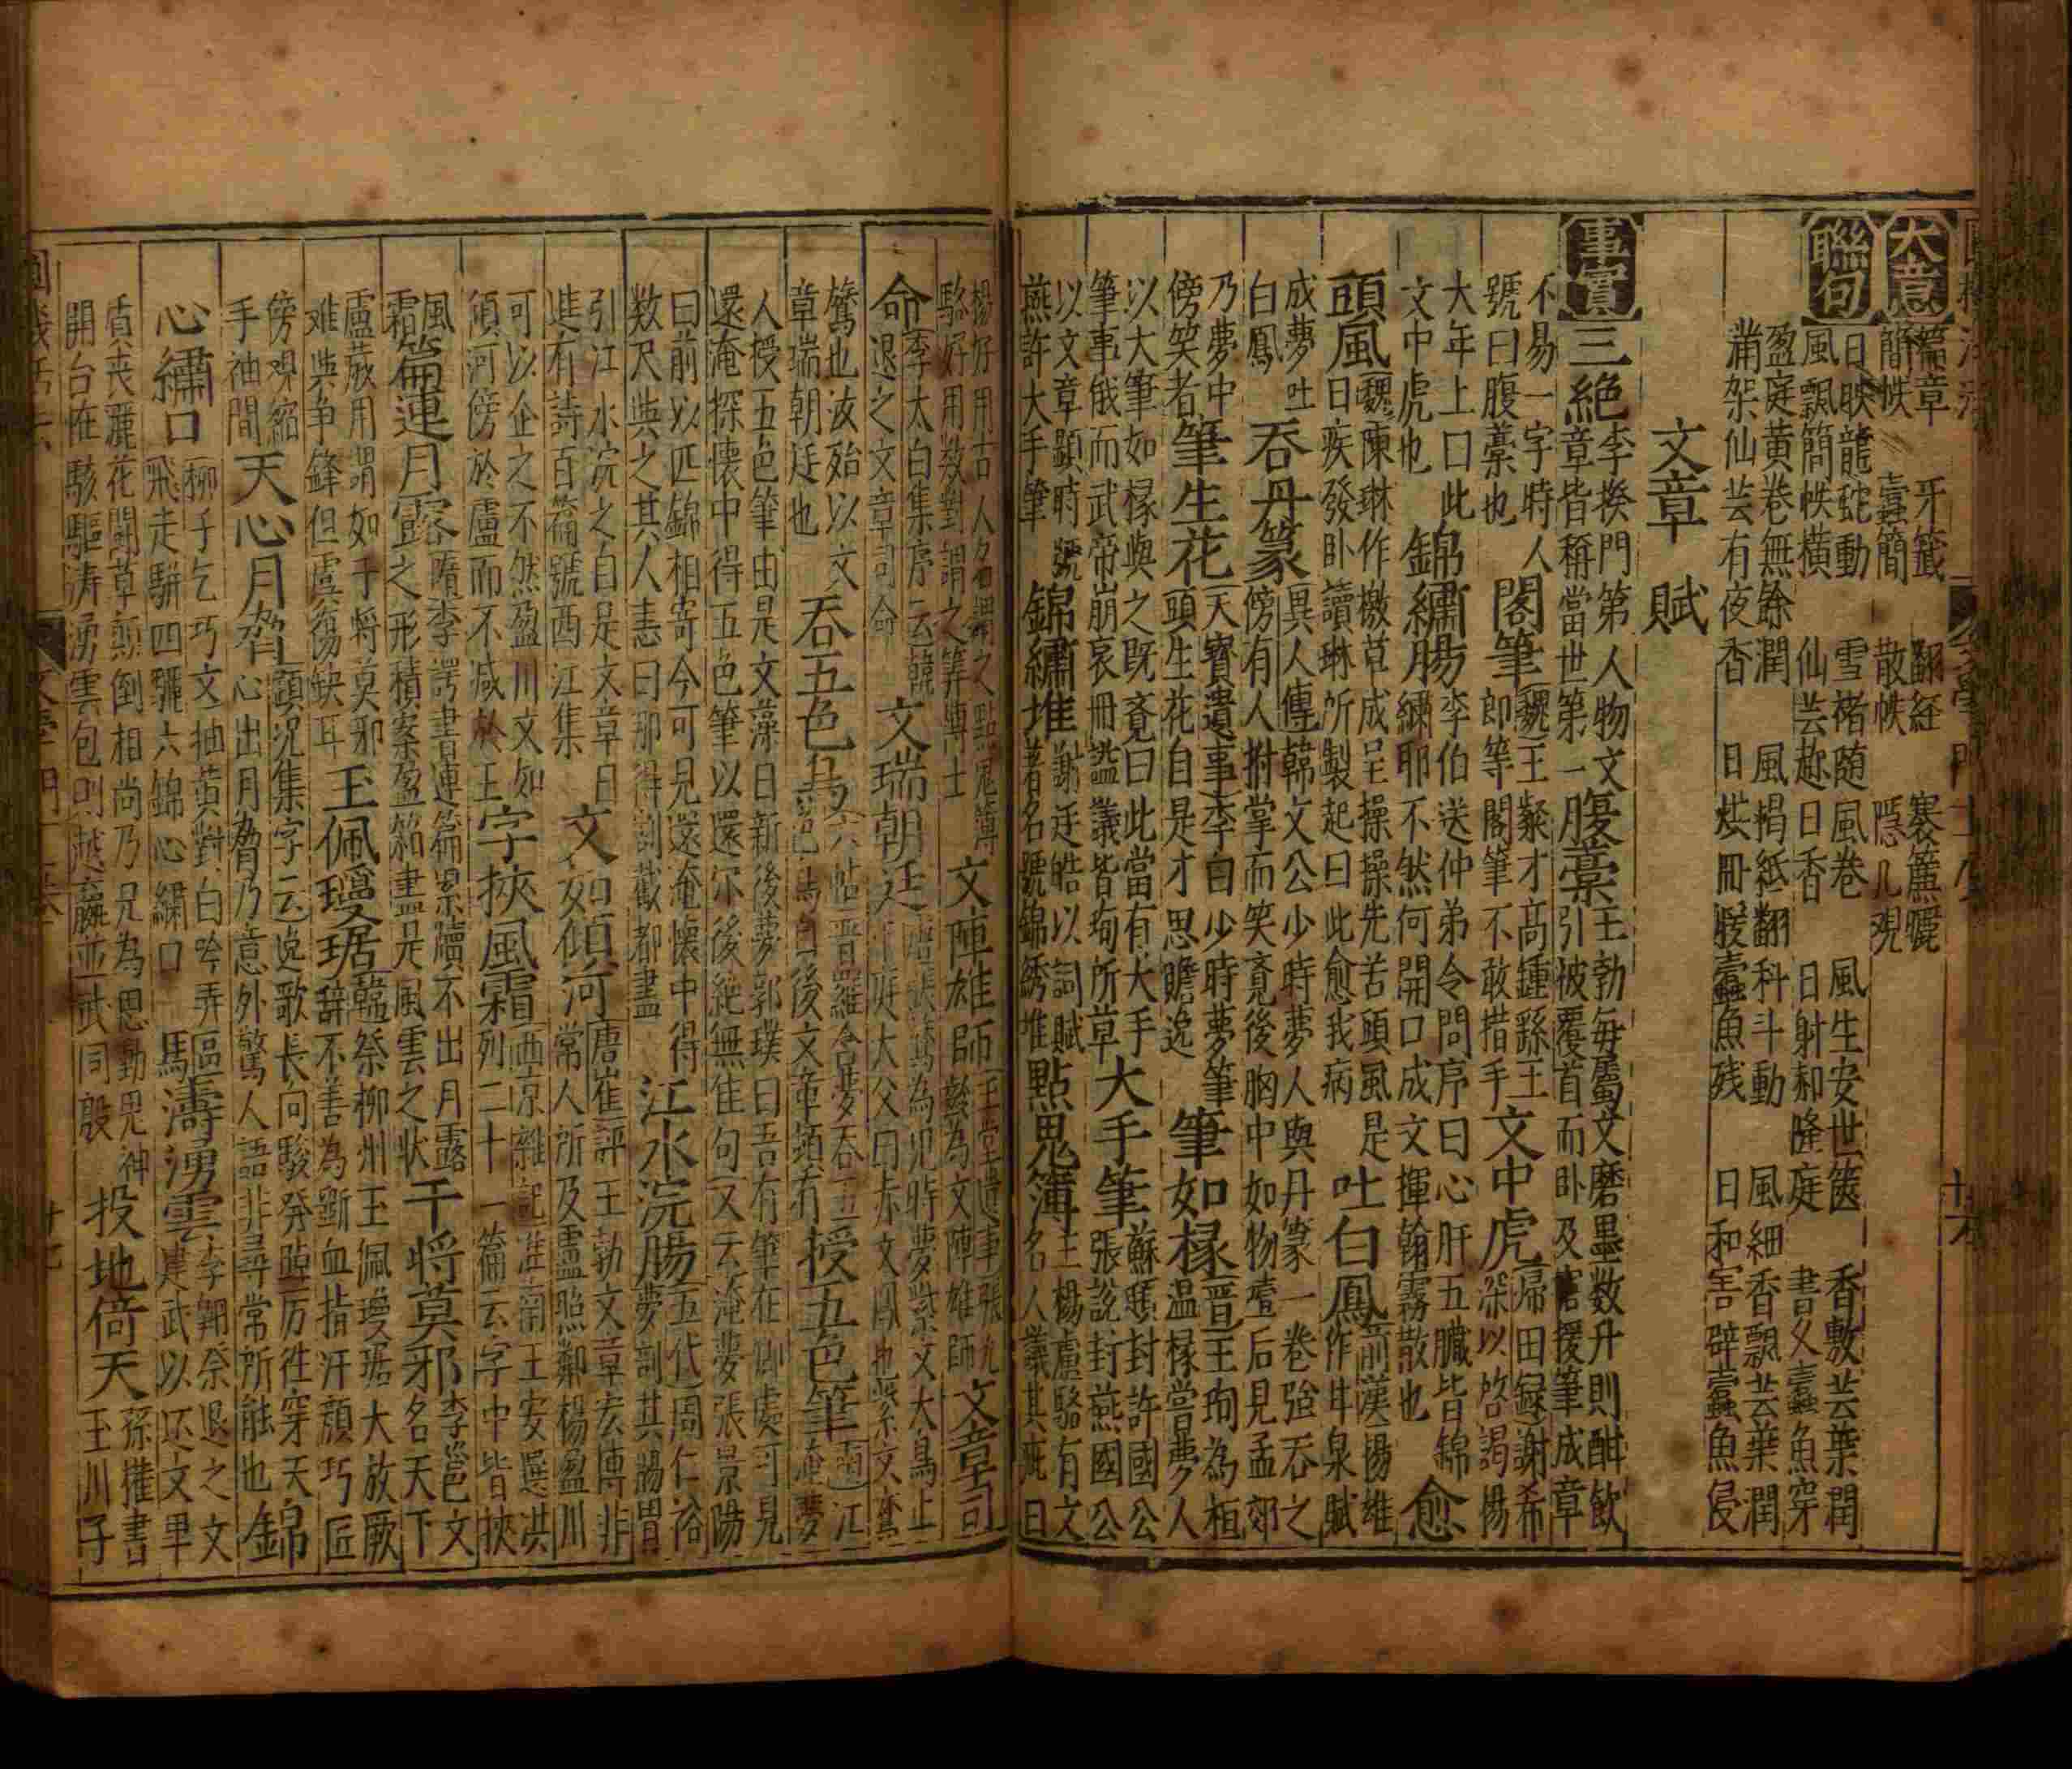 大意
篇章 牙籤 翻経 褰簾曬
簡帙 蠹簡 散帙 隠几覌
聯句
日映龍蛇動 雪楮随風巻 風生安世篋 香敷芸葉閏
風飄簡帙横 仙芸趂日香 日射郝隆庭 書久蠹魚穿
盈庭黄巻無餘潤 風揭紙翻科斗動 風細香飄芸葉潤
滿架仙芸有夜香 日烘冊暖蠹魚残 日和害辟蠹魚侵
文章 賦
事實
三絶 李揆門第人物文章皆稱當世第一 腹藁 王勃每屬文磨墨数升則酣飲引被覆首而卧及寤援筆成章
不易一字時人號曰腹藁也 閣筆 魏王粲才高鍾繇王即等閣筆不敢措手 文中虎 帰田録謝希深以啓謁楊
大年上口此文中虎也 錦繡腸 李伯送仲弟令問序曰心肝五臟皆錦繡耶不然何開口成文揮翰霧散也 愈
頭風 魏陳琳作檄草成呈操操先苦頭風是日疾發卧讀琳所製起曰此愈我病 吐白鳳 前漢揚雄作甘泉賦
成夢吐白鳳 吞丹篆 異人傳韓文公少時夢人與丹篆一巻強吞之傍有人拊掌而笑覔後胸中如物噎后見孟郊
乃夢中傍笑者 筆生花 天寳遺事李白少時夢筆頭生花自是才思瞻逸 筆如椽 晋王珣為桓温椽嘗夢人
以大筆如椽與之既斍曰此當有大手筆事俄而武帝崩哀冊謚議皆珣所草 大手筆 蘇頲封許國公張說封燕國公
以文章顕時號燕許大手筆 錦繡堆 謝廷皓以詞賦著名號錦綉堆 點鬼簿 王楊盧駱有文名人議其疵曰
楊好用古人名謂之點鬼簿駱好用数對謂之筭博士 文陣雄師 玉堂遺事張九齡為文陣雄師 文章司
命 李太白集序云韓退之文章司命 文瑞朝廷 唐張鷟為児時夢紫文大鳥止于庭大父曰赤文鳳也紫文鸑
鷟也汝殆以文章瑞朝廷也 吞五色鳥 六帖晋羅含夢吞五色鳥自後文章頴有 授五色筆 南江淹夢
人授五色筆由是文藻日新後夢郭璞曰吾有筆在卿處可見還淹探懐中得五色筆以還尓後絶無佳句 又云淹夢張景陽
曰前以匹錦相寄今可見還淹懐中得数尺與之其人恚曰那得割截都盡 江水浣腸 五代周仁裕夢剖其腸胃
引江水浣之自是文章日進有詩百篇號西江集 文如傾河 唐崔評王勃文章宏博非常人所及盧照鄰楊盈川
可以企之不然盈川文如傾河傍於盧而不减於王 字挾風霜 西京雜記淮南王安選洪列二十一篇云字中皆挾
風霜 篇連月露 隋李諤書連篇累牘不出月露之形積案盈箱盡是風雲之状 干将莫邪 李邕文名天下
盧蔵用謂如于将莫邪难與争鋒但虞傷缺耳 玉佩瓊琚 韓祭柳州玉佩瓊琚大放厥辞不善為斲血指汗顔巧匠
傍观縮手袖間 天心月脅 顧况集字云逸歌長句駿發踔厉徃徃穿天心出月脅乃意外驚人語非尋常所能也 錦
心繡口 柳子乞巧文抽黄對白吟弄飛走駢四驪六錦心綉口 濤湧雲 李翺祭退之文建武以还文卑
質丧麗花鬪草顛倒相尚乃兄為思動鬼神開合在駭驅濤湧雲包則越嬴並武同殷 投地倚天 孫樵書玉川子